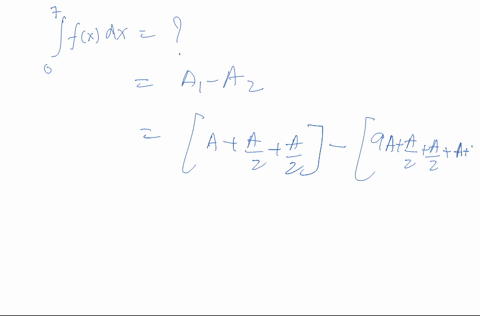 ∫₀⁷ f(x) dx = ?
= A₁ - A₂
= [A + A/2 + A/2] - [9A + A/2 + A/2 + A +